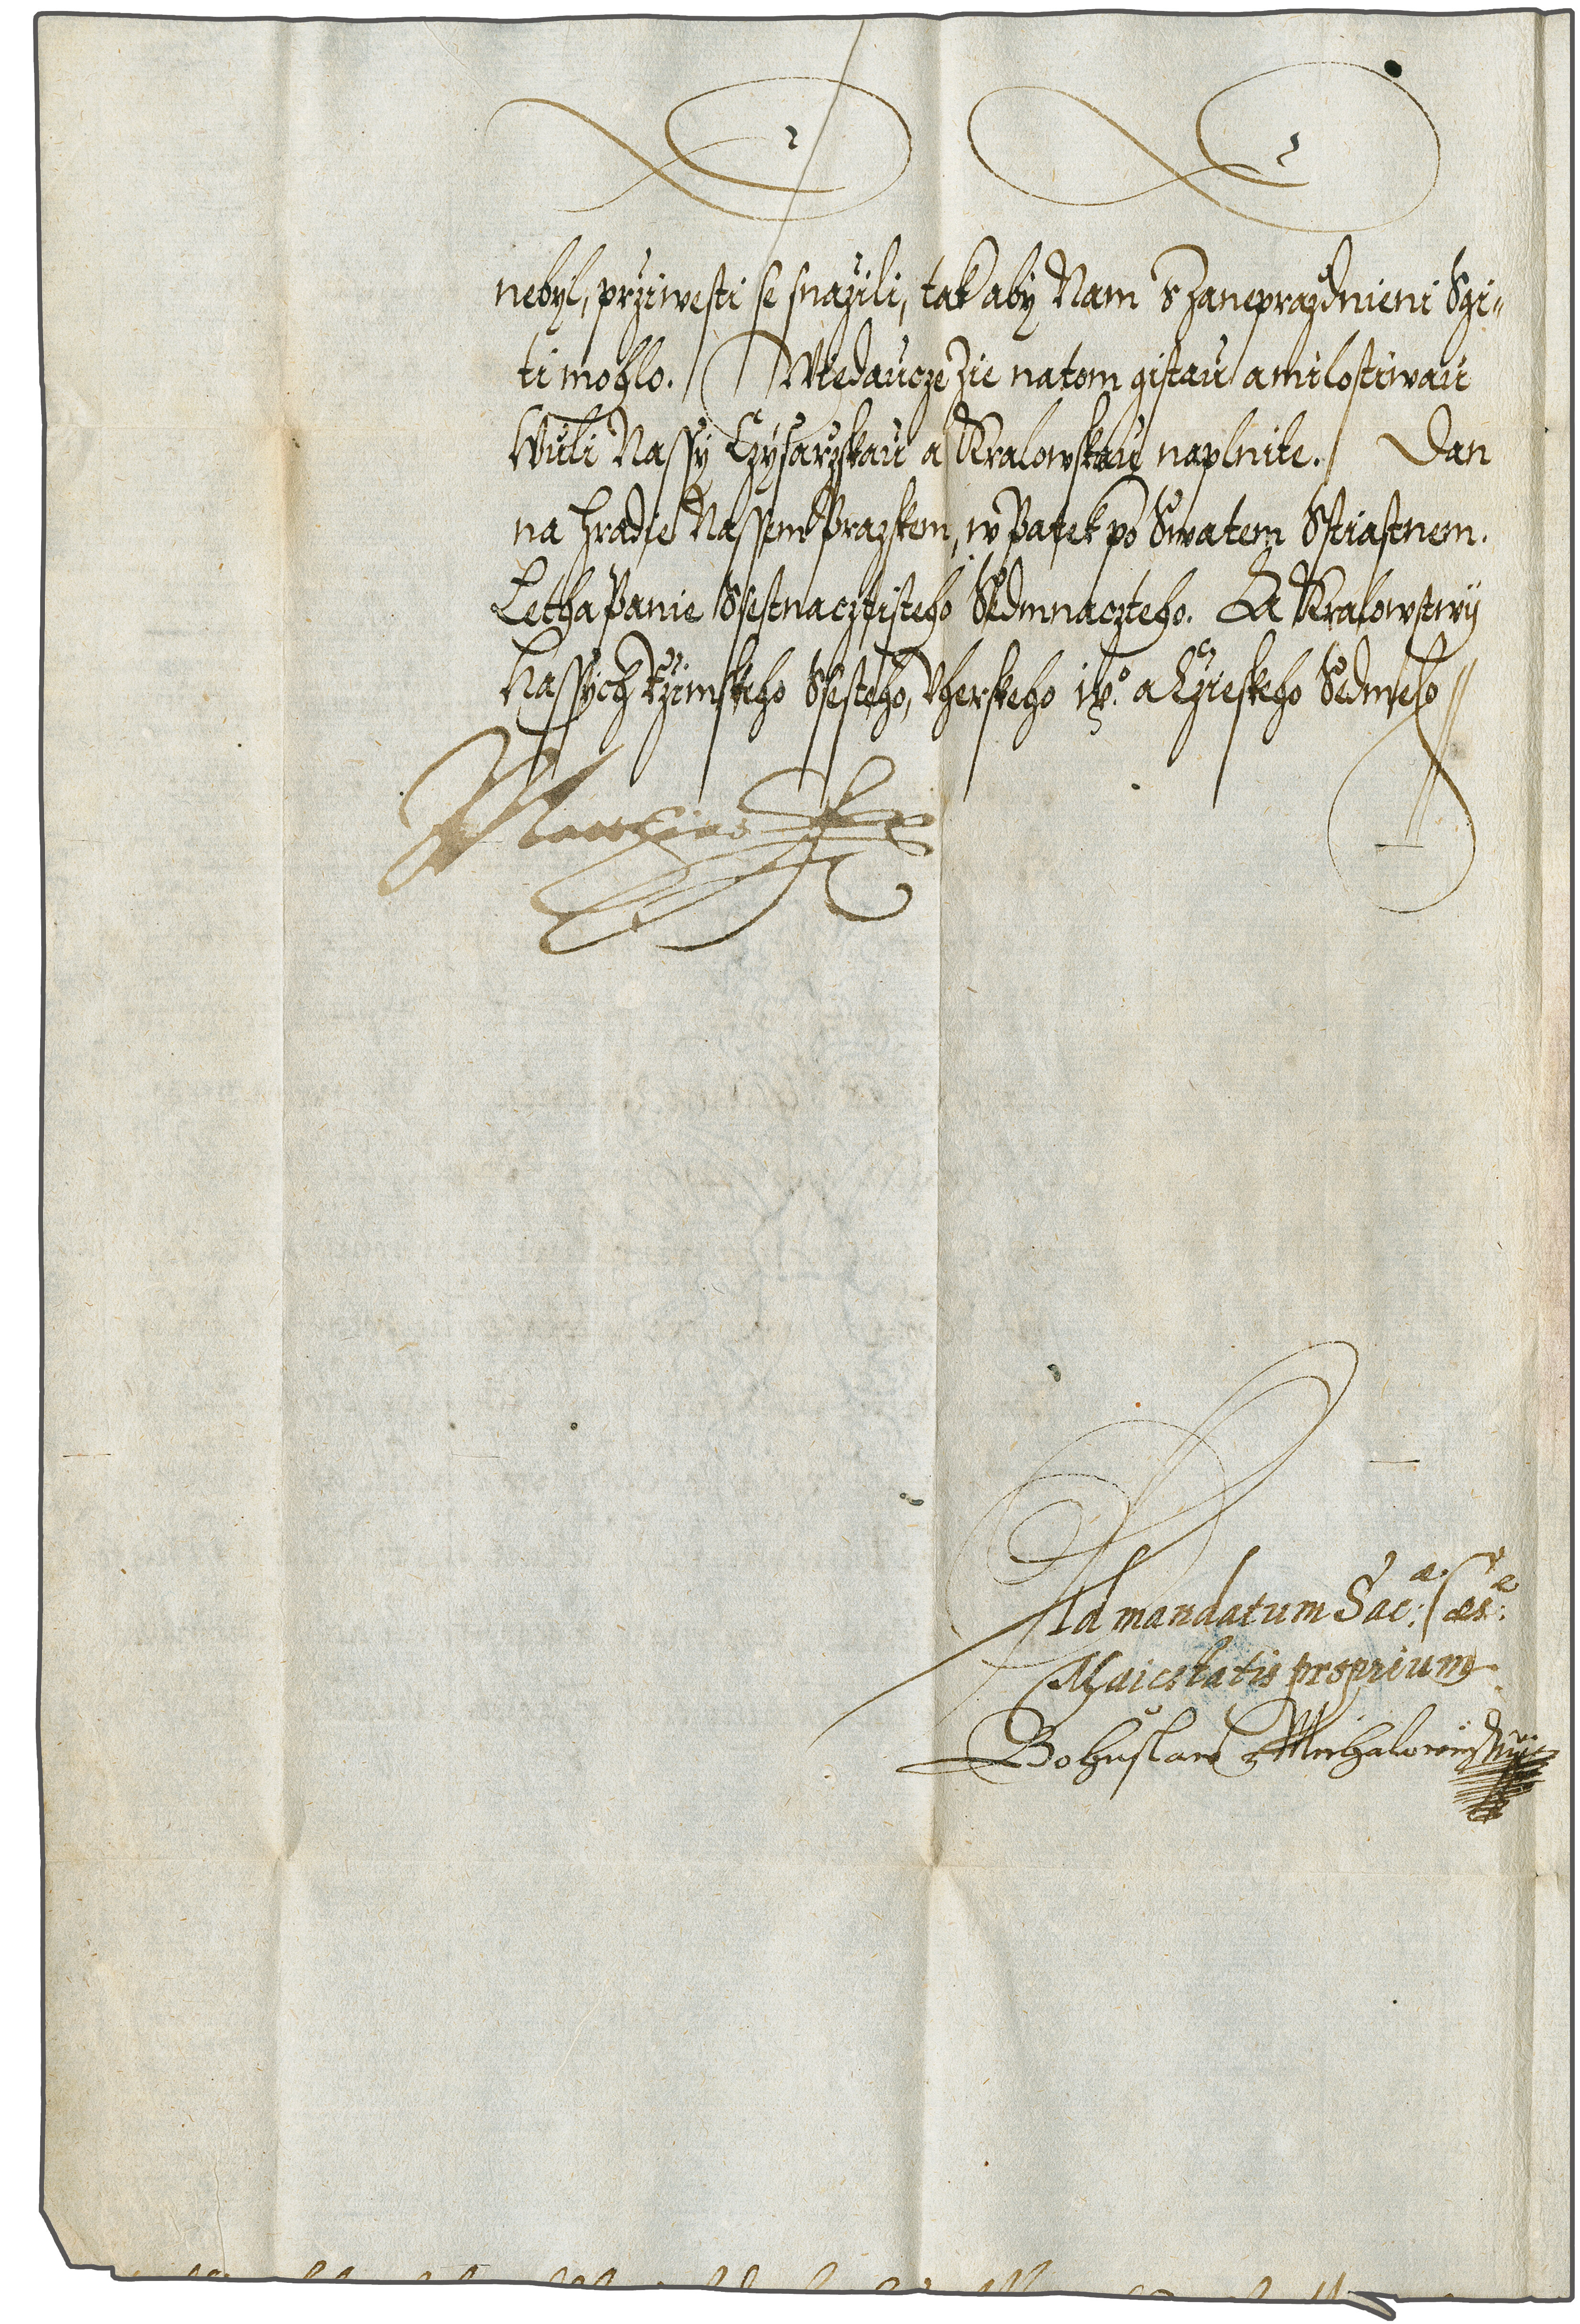 nebyl, prziwesti se snazili, tak aby Nam s zaneprazdnieni Sgi=
ti mohlo. Wiedaucze zie na tom gistau a milostiwau
Wuli Nassy Czysarzskau a Kralowskau naplnite. Dan
na Hradie Nassem Prazskem, w Patek po Swatem Sstiastnem.
Letha Panie Ssestnacztisteho Sedmnaczteho. A Kralowstwij
Nassych Rzimskeho Ssesteho, Vherskeho ix.o a Czieskeho Sedmeho
Matthias
Ad mandatum Sac: ae Caes: ae
Maiestatis proprium
Bohuslaw Michalowicz